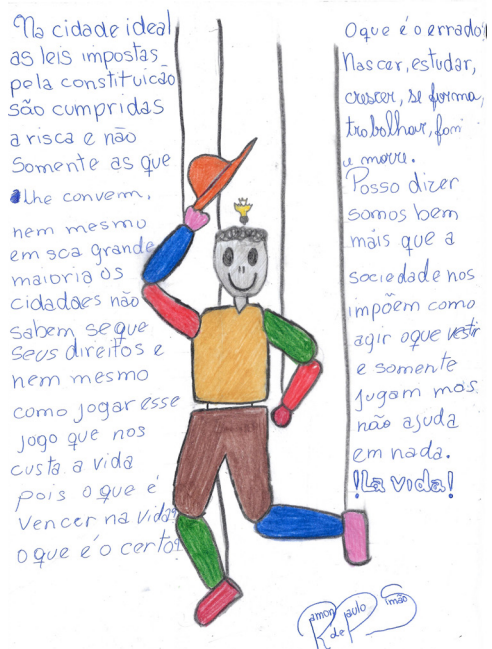 Na cidade ideal
as leis impostas
pela constituicão
são cumpridas
a risca e não
Somente as que
lhe convem,
nem mesmo
em sca grande
maioria os
cidadães não
sabem seque
seus direitos e
nem mesmo
como jogar esse
jogo que nos
custa a vida
pois o que é
vencer na vida?
o que é o certo?
O que é o errado?
Nascer, estudar,
crescer, se forma,
trabalhar,
e morre.
Posso dizer
somos bem
mais que a
sociedade nos
impõem como
agir o que vestir
e somente
jugam mas
não ajuda
em nada.
!La vida!
Ramon
de Paulo
Simão